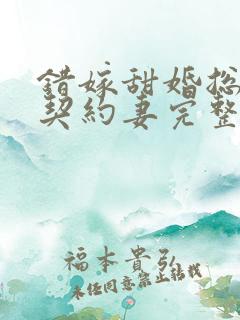 錯嫁甜婚總
契約妻完整
福本貴弘
未經同意禁止轉載